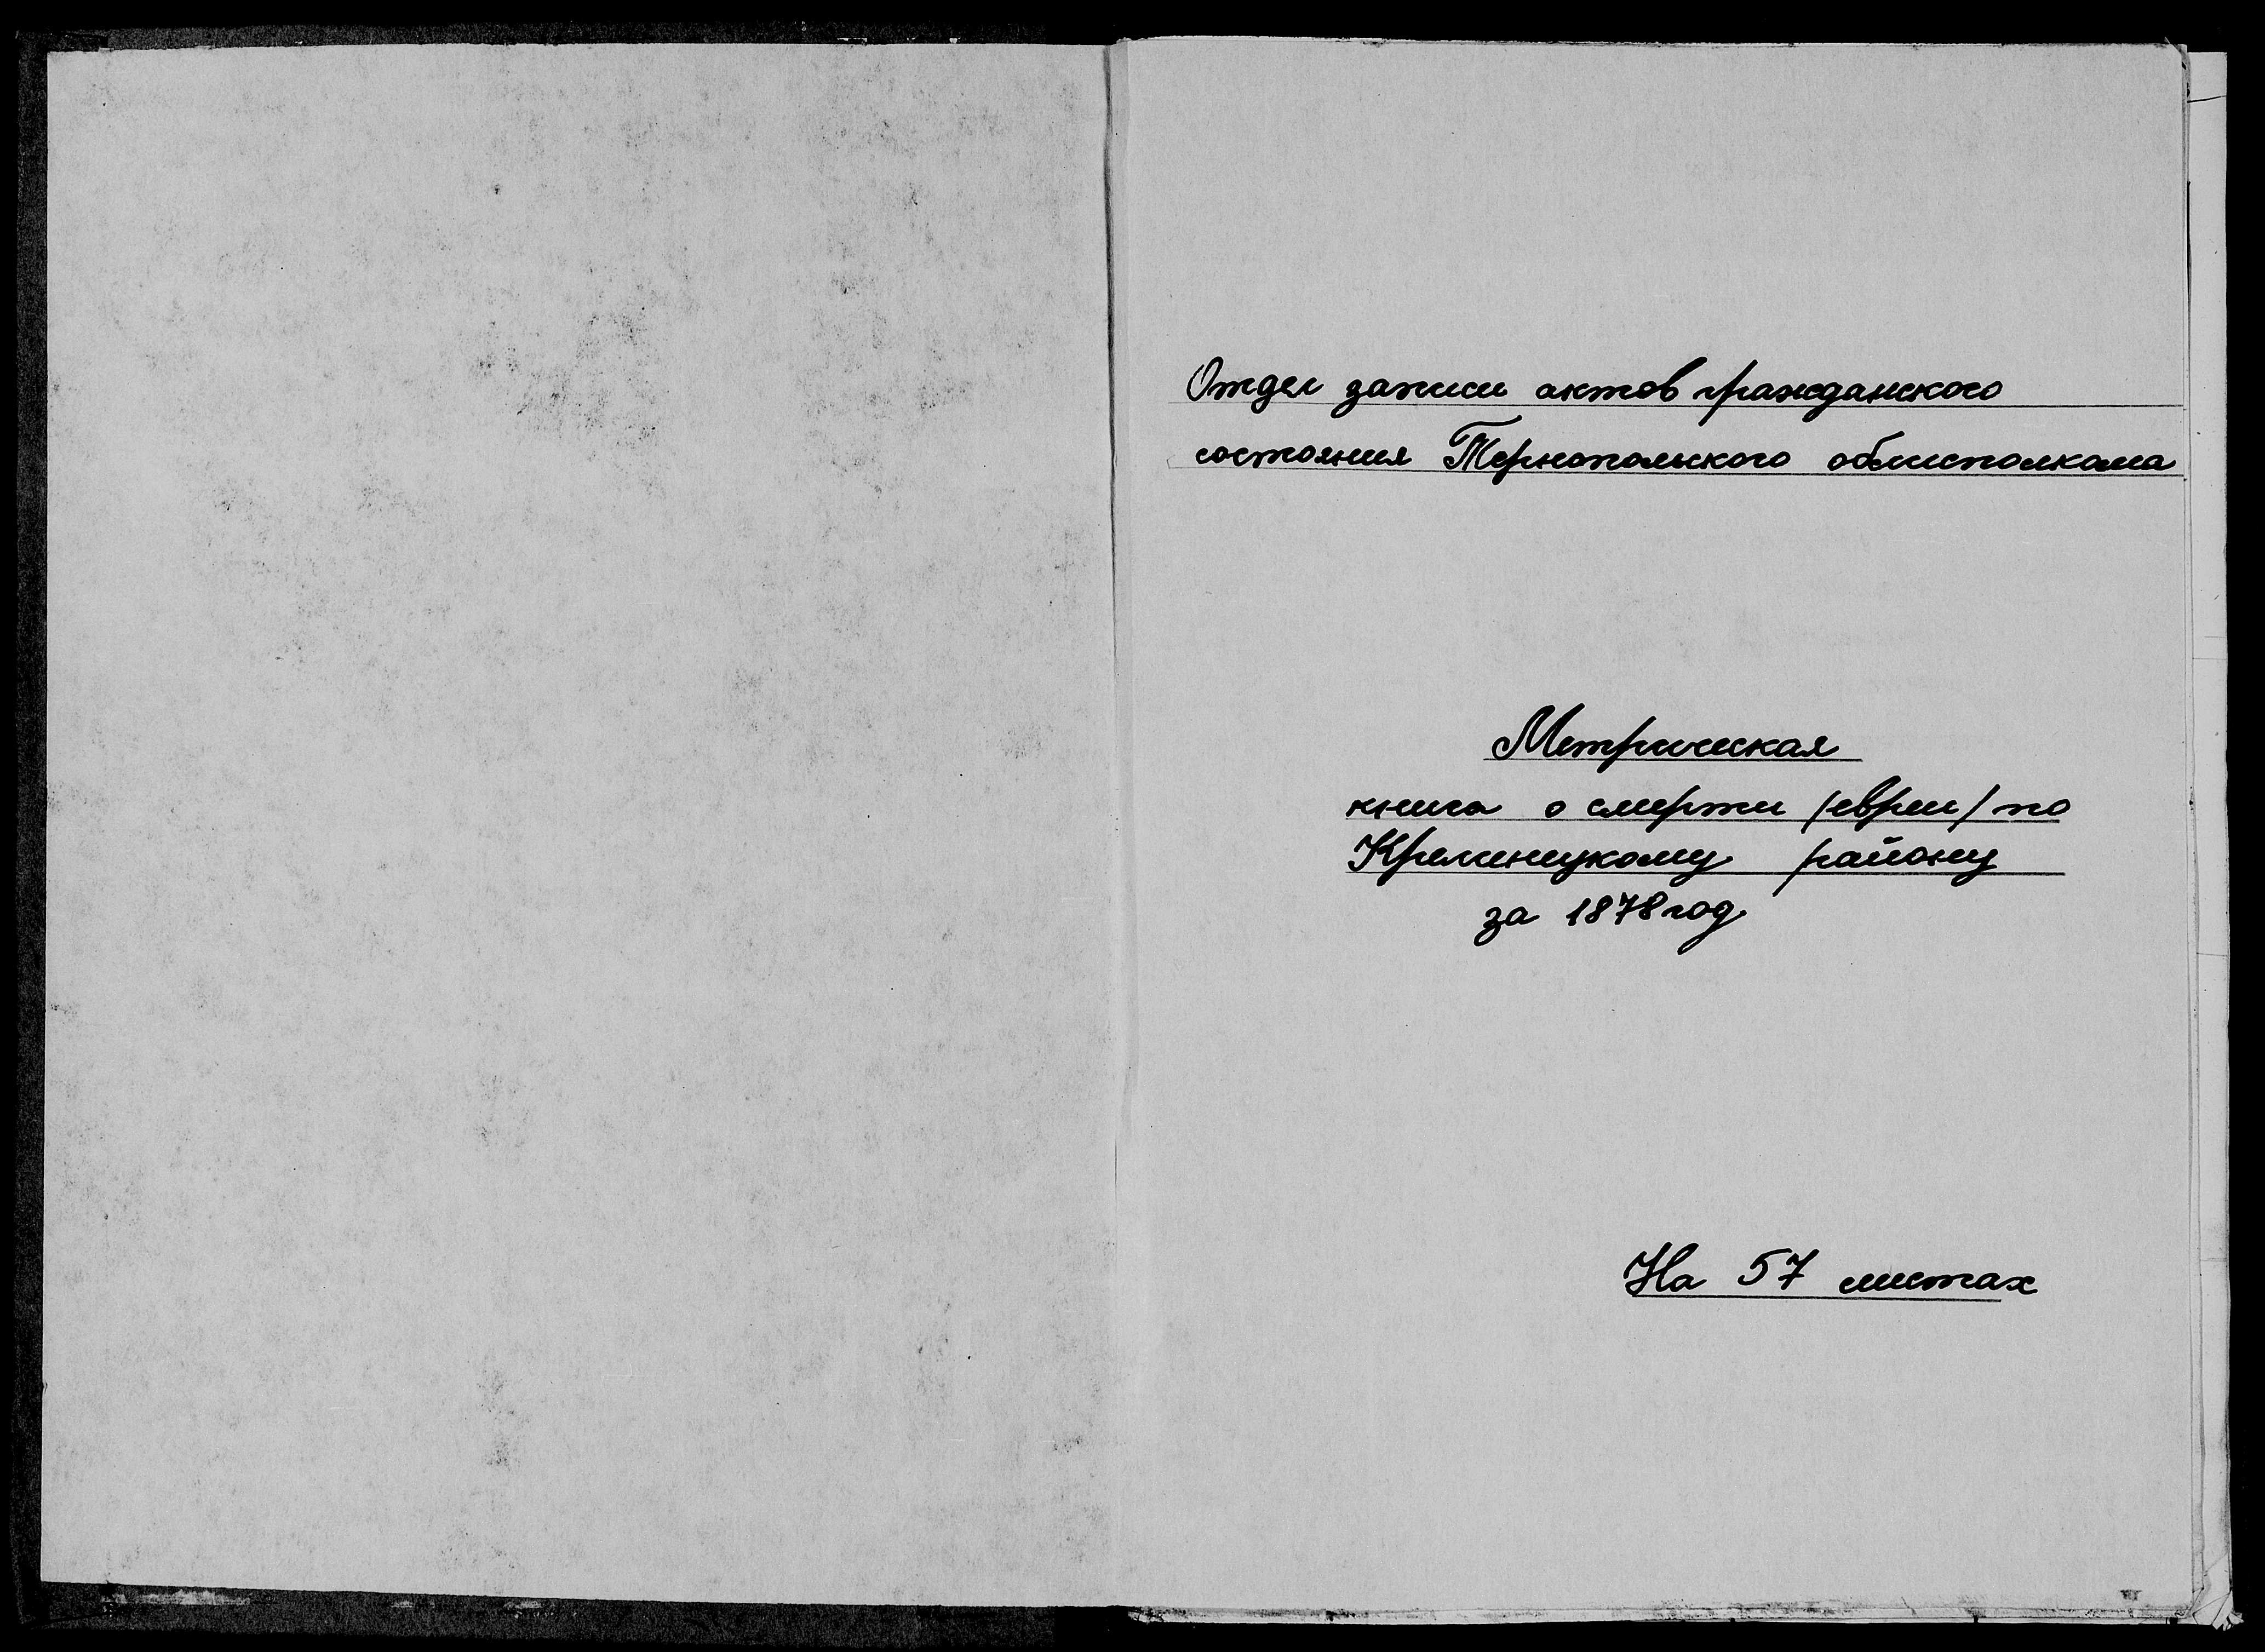 Отдел записи актов гражданского
состояния Тернопольского облисполкома
Метрическая
книга о смерти /евреи/ по
Кременецкому району
за 1878 год
На 57 листах